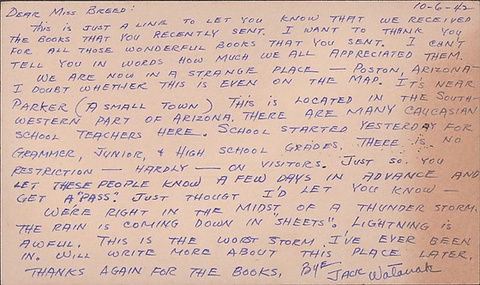 10-6-42
DEAR MISS BREED:
THIS IS JUST A LINE TO LET YOU KNOW THAT WE RECEIVED
THE BOOKS THAT YOU RECENTLY SENT. I WANT TO THANK YOU
FOR ALL THOSE WONDERFUL BOOKS THAT YOU SENT. I CAN'T
TELL YOU IN WORDS HOW MUCH WE ALL APPRECIATED THEM.
WE ARE NOW IN A STRANGE PLACE — POSTON, ARIZONA —
I DOUBT WHETHER THIS IS EVEN ON THE MAP. IT'S NEAR
PARKER (A SMALL TOWN) THIS IS LOCATED IN THE SOUTH-
WESTERN PART OF ARIZONA. THERE ARE MANY CAUCASIAN
SCHOOL TEACHERS HERE. SCHOOL STARTED YESTERDAY FOR
GRAMMER, JUNIOR, & HIGH SCHOOL GRADES. THERE IS NO
RESTRICTION — HARDLY — ON VISITORS. JUST SO YOU
LET THESE PEOPLE KNOW A FEW DAYS IN ADVANCE AND
GET A "PASS". JUST THOUGT I'D LET YOU KNOW —
WE'RE RIGHT IN THE MIDST OF A THUNDER STORM.
THE RAIN IS COMING DOWN IN "SHEETS". LIGHTNING IS
AWFUL. THIS IS THE WORST STORM I'VE EVER BEEN
IN. WILL WRITE MORE ABOUT THIS PLACE LATER.
THANKS AGAIN FOR THE BOOKS, BYE
JACK